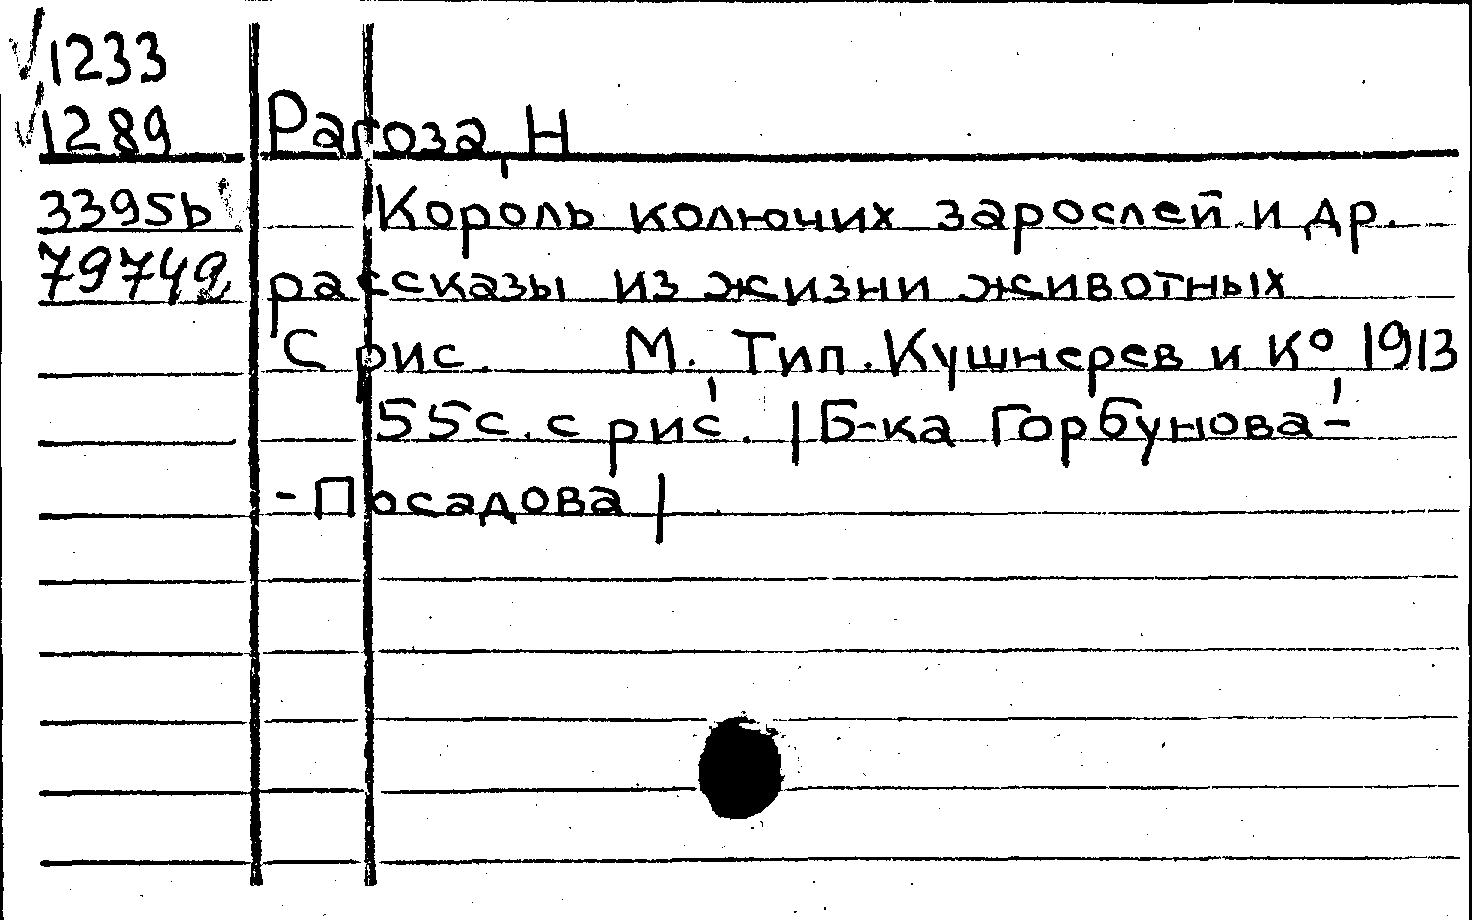 √1233
√1289 Рагоза, Н
3395b Король колючих зарослей и др.
79749 рассказы из жизни животных
С рис. М. Тип. Кушнерев и К° 1913
55 с. с рис. |Б-ка Горбунова-
-Посадова|